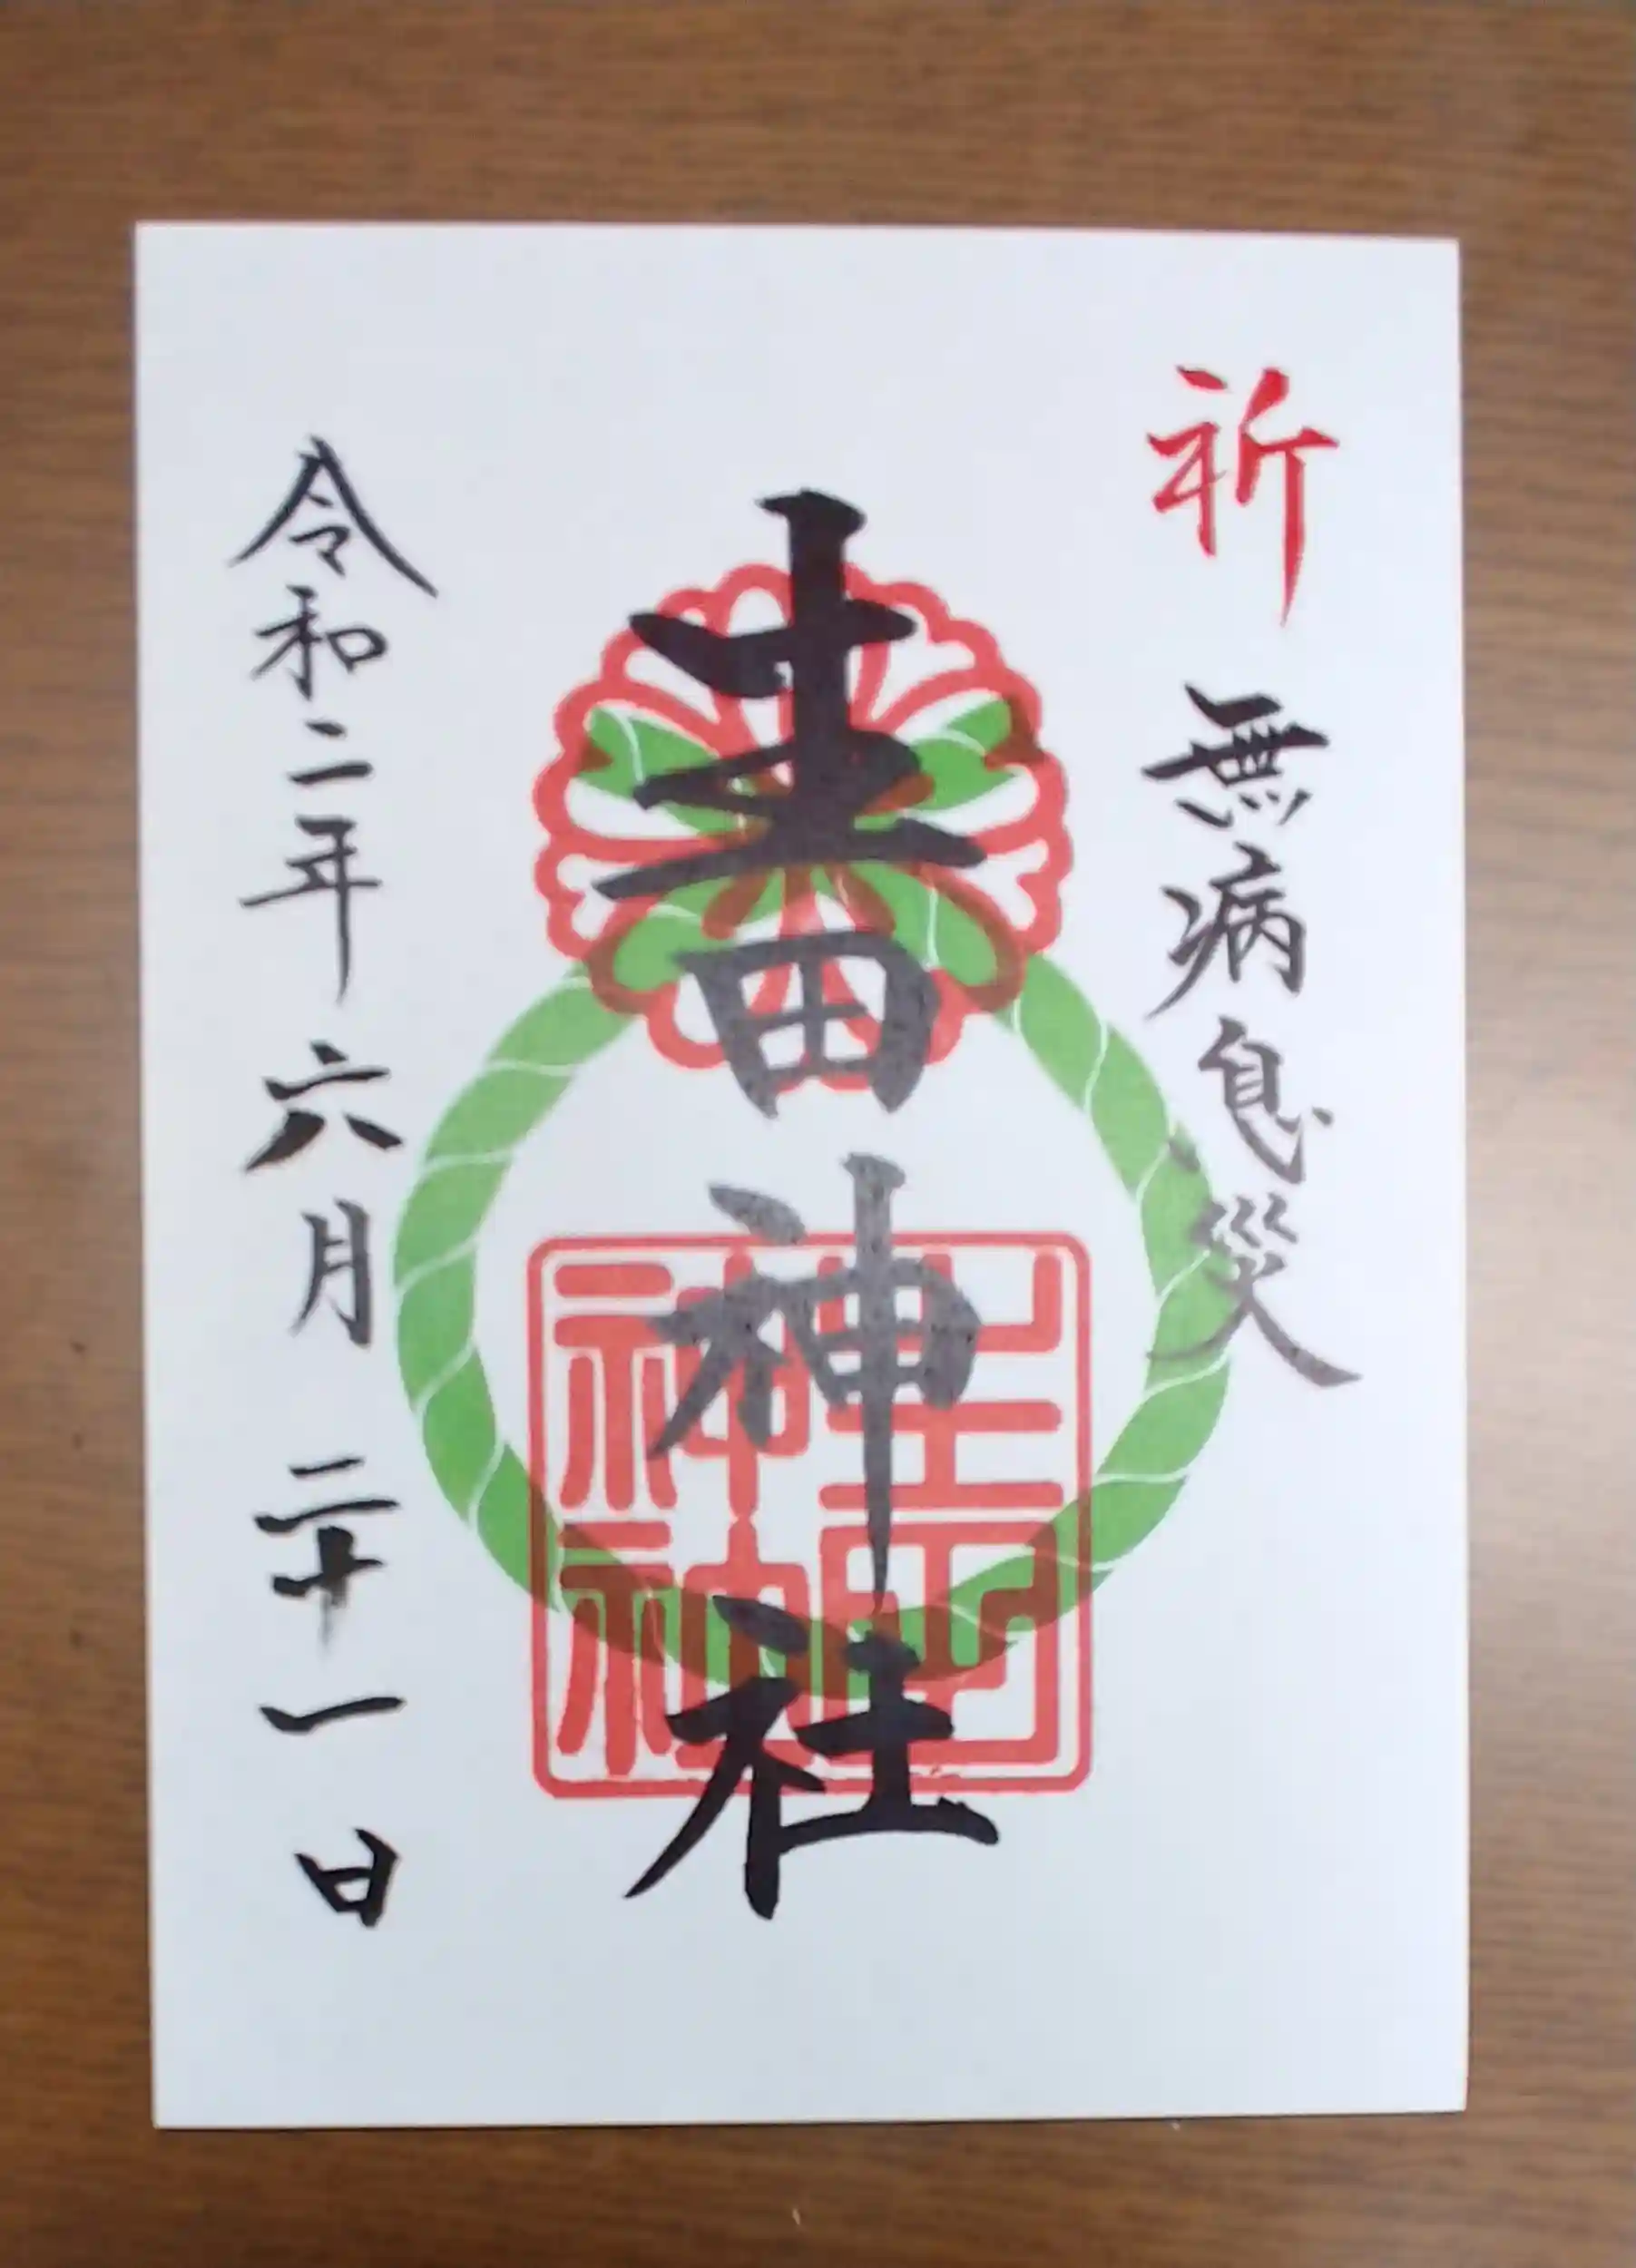 祈 無病息災
生田神社
令和二年六月二十一日